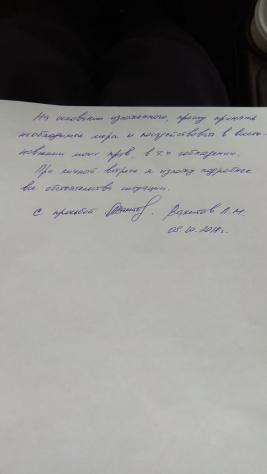 На основании изложенного, прошу принять
необходимые меры и посодействовать в восста-
новлении моих прав, в т.ч.
При личной встрече я изложу подробнее
все обстоятельства ситуации.
С просьбой Вахитов Л.М.
08.10.2018г.